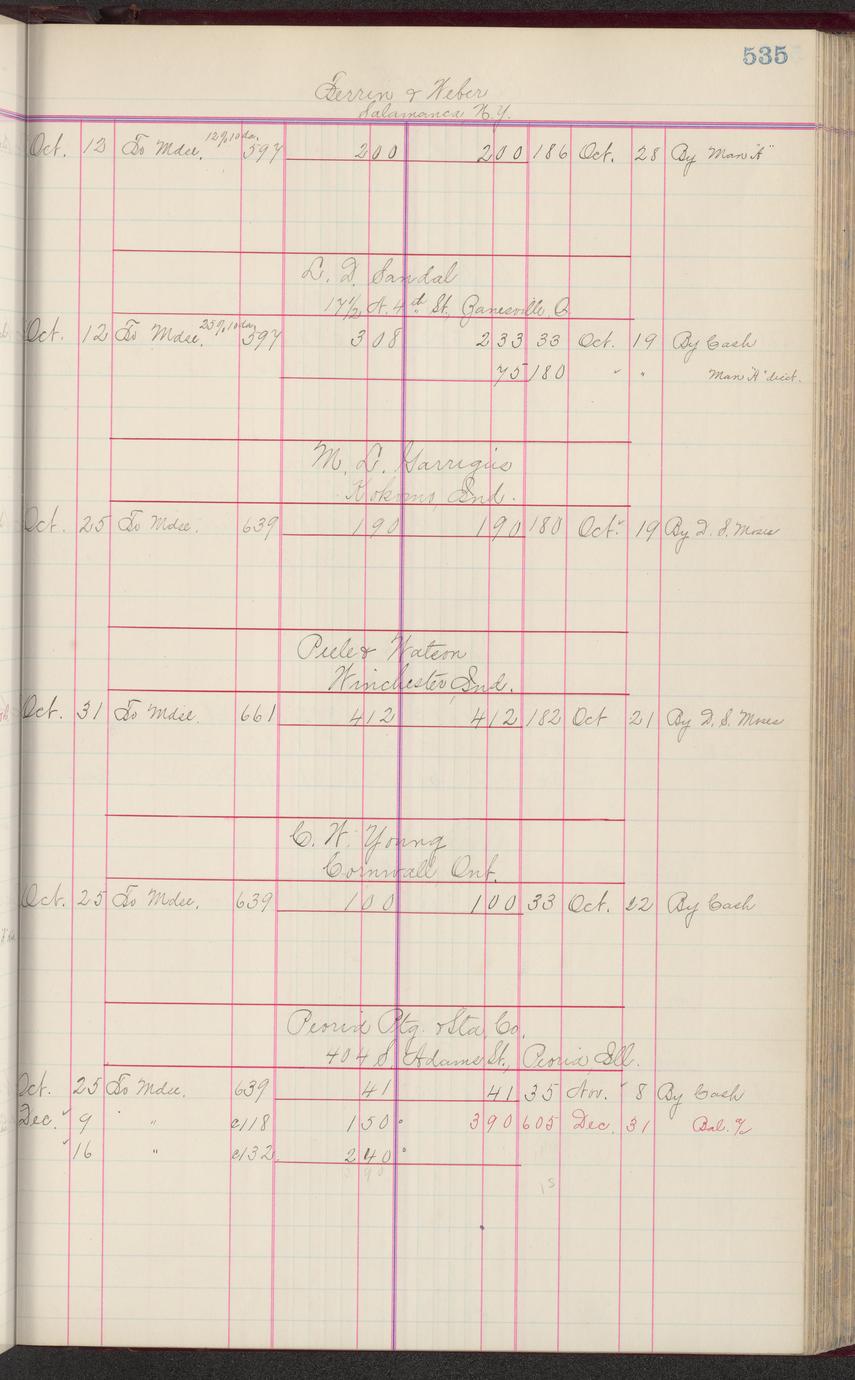 535
Ferrin & Weber
Salamanca, N.Y.
Oct. 13 To Mdse. 12% 10 da. 597 200 200 186 Oct. 28 By Man "A"
L. D. Sandal
17½ N. 4th St., Zanesville, O.
Oct. 12 To Mdse. 25% 10 day 597 308 233 33 Oct. 19 By Cash
75 180 " " Man "A" dict.
M. L. Garrigus
Kokomo, Ind.
Oct. 25 To Mdse. 639 190 190 180 Oct. 19 By D. S. Moses
Peele & Watson
Winchester, Ind.
Oct. 31 To Mdse. 661 412 412 182 Oct 21 By D. S. Moses
C. W. Young
Cornwall, Ont.
Oct. 25 To Mdse. 639 100 100 33 Oct. 22 By Cash
Peoria Ptg. & Sta. Co.
404 S. Adams St., Peoria, Ill.
Oct. 25 To Mdse. 639 41 41 35 Nov. 8 By Cash
Dec. 9 " c118 150 390 605 Dec. 31 Bal. %
16 " c132 240
390
15